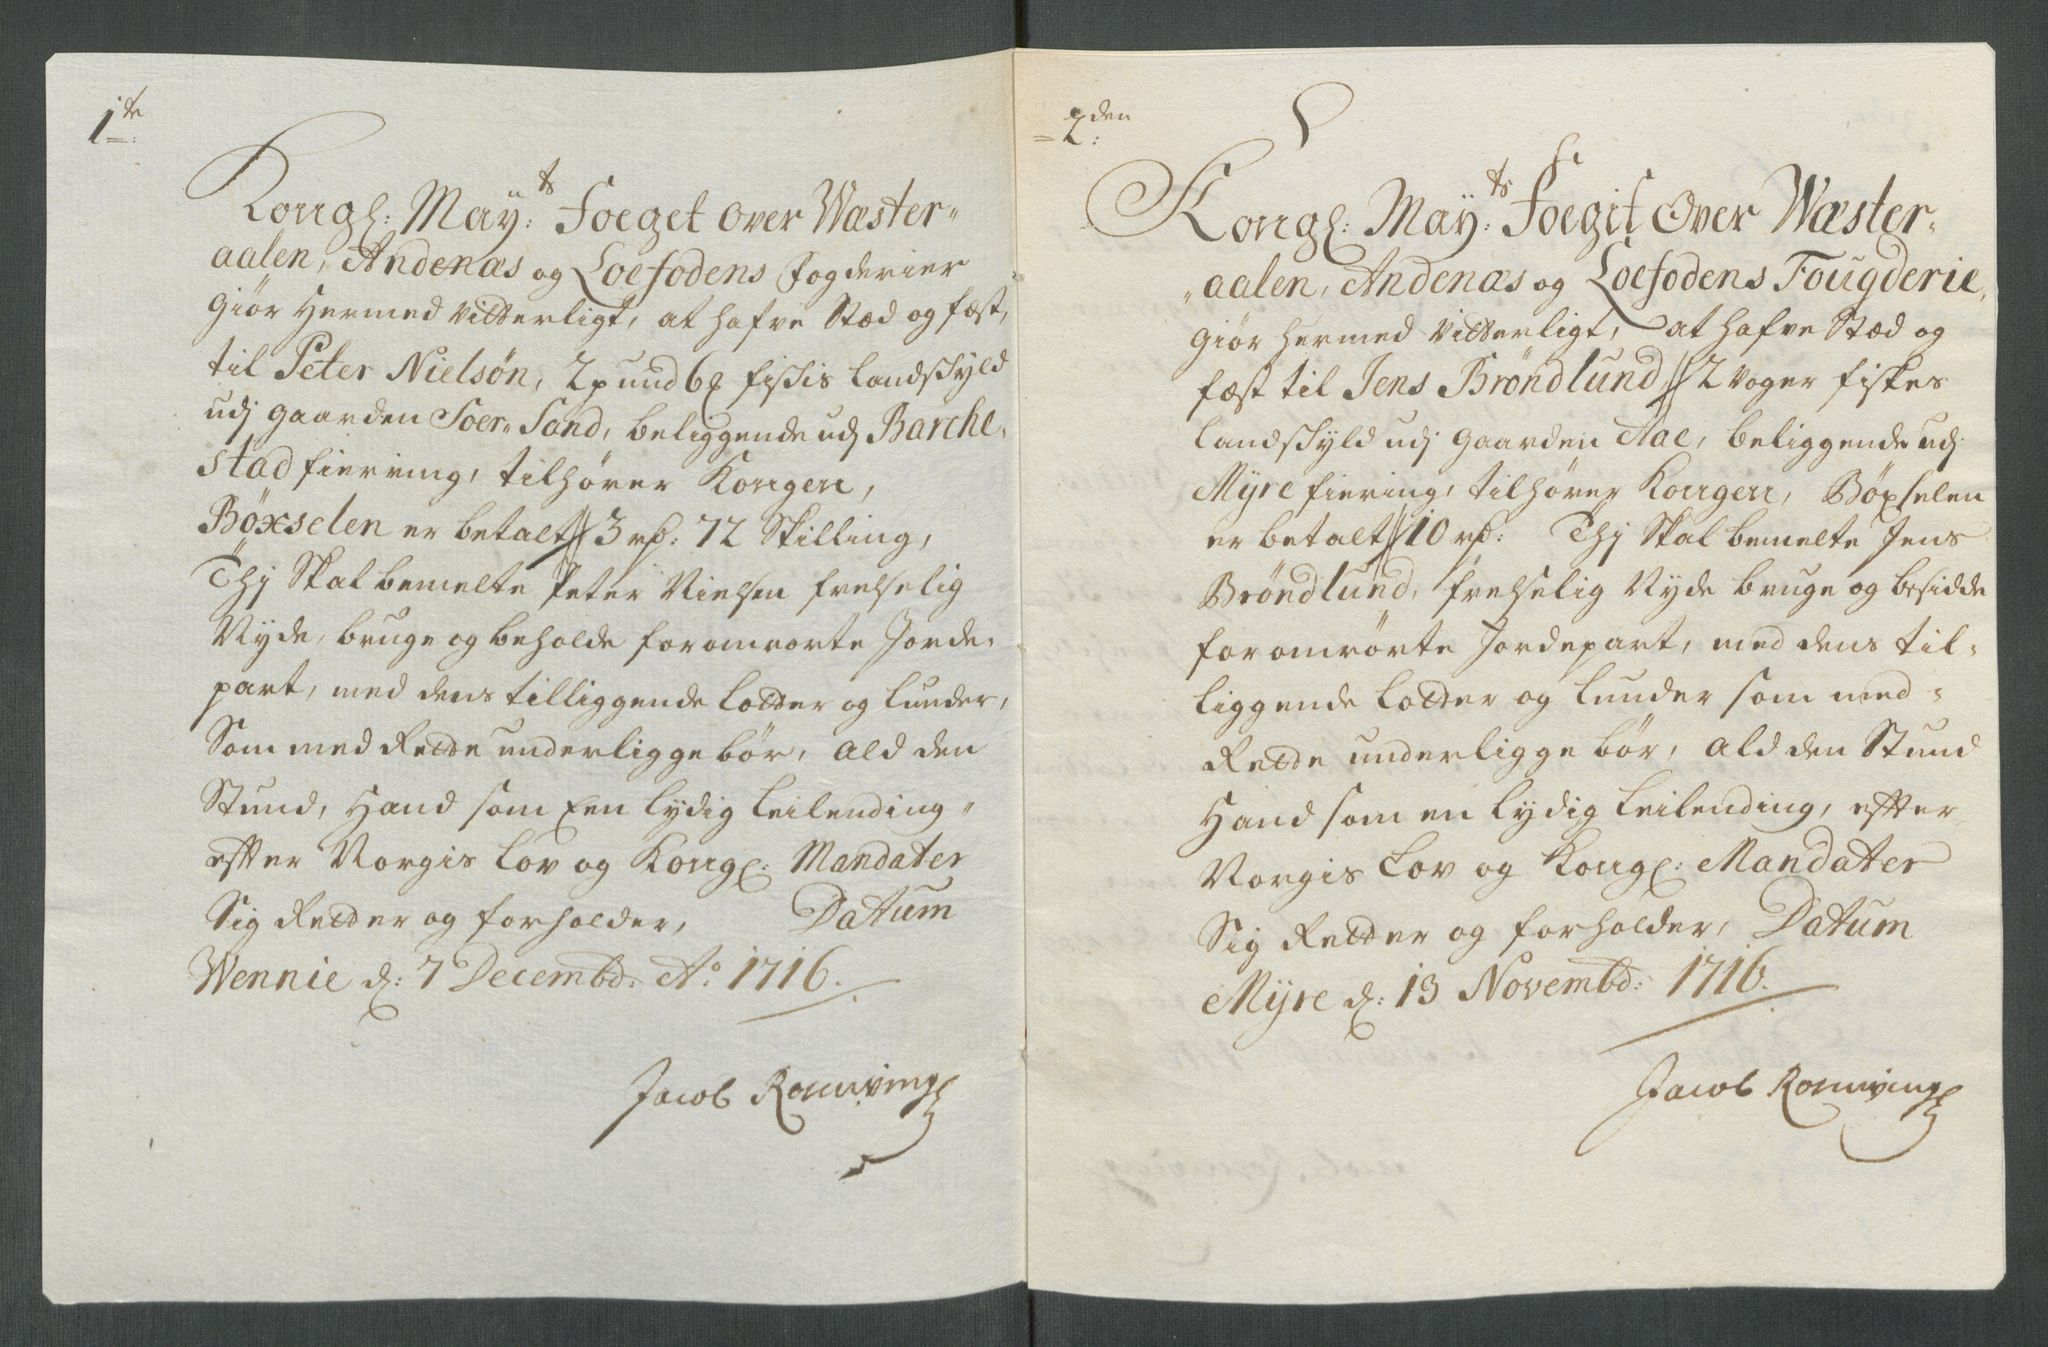 1te
Kongl: May:ts Foeget over Wæster-
aalen, Andenæs og Loefodens Fogderier
Giør Hermed vitterligt, at hafve Stæd og fæst,
til Peter Nielsøn, 2 pund 6 ₰ fisches Landschyld
udj gaarden Soer-Sand, beliggende udj Barche-
stad fiering, tilhører Kongen,
Böxselen er betalt 3 rd: 72 Skilling,
Thj Skal bemelte Peter Nielsen frelselig
Nyde, bruge og beholde forommrørte Jorde-
part, med dens tilliggende Lotter og Lunder,
Som med Rette underligge bör, Ald den
Stund, Hand som Een lydig Leilending-
efter Norgis Lov og Kongl: Mandater
Sig Retter og forholder, Datum
Wennie d: 7 Decembd: Ao 1716.
Jacob Rosing
2den
Kongl: May:ts Foegit Over Wæster-
aalen, Andenæs og Loefodens Fougderie,
Giör hermed vitterligt, at hafve Stæd og
fæst til Jens Bröndlund, 2 Voger fiskes
Landschyld udj gaarden Aae, beliggende udj
Myre fiering, tilhører Kongen, Böxselen
er betalt 10 rd: Thj Skal bemelte Jens
Bröndlund, frelselig Nyde bruge og besidde
foromrörte Jordepart, med dens til-
liggende Lotter og Lunder som med-
Rette underligge bör, Ald den Stund
Hand som en lydig Leilending, efter
Norgis Lov og Kongl: Mandater
Sig Retter og forholder, Datum
Myre d: 13 Novembd: 1716.
Jacob